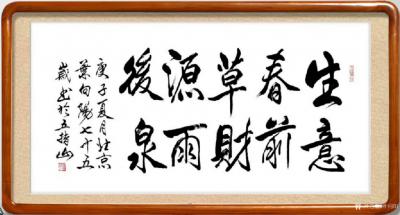 生意
春前
草財
源雨
後泉
庚子夏月京
葉向陽七十五
歲书於五指山